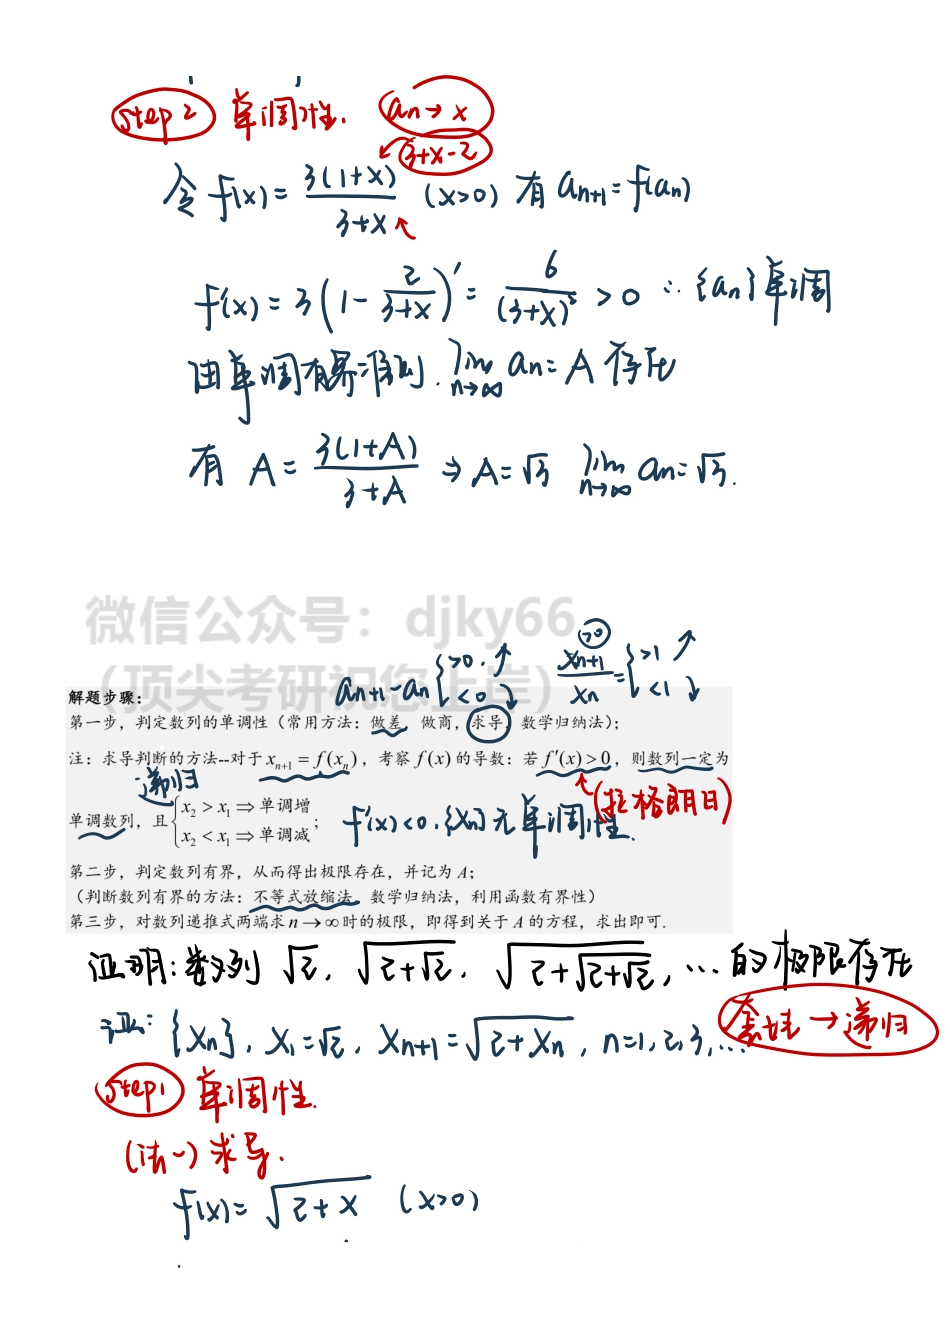 step 2 单调性. an→x
3+x-2
令 f(x) = 3(1+x)/(3+x) (x>0) 有 an+1=f(an)
f'(x) = 3(1 - 2/(3+x))' = 6/(3+x)² > 0 ∴{an}单调
由单调有界准则. lim n→∞ an = A 存在
有 A = 3(1+A)/(3+A) ⇒ A=√3 lim n→∞ an=√3.
微信公众号：djky66
（顶尖考研祝您上岸）
an+1-an { >0. ↗ <0 ↘ xn+1/xn (>0) = { >1 ↗ <1 ↘
解题步骤：
第一步，判定数列的单调性（常用方法：做差，做商，求导，数学归纳法）；
注：求导判断的方法--对于 xn+1 = f(xn)，考察 f(x) 的导数：若 f′(x) > 0，则数列一定为
递归
(拉格朗日)
单调数列，且 { x2 > x1 ⇒ 单调增 x2 < x1 ⇒ 单调减 ；
f'(x)<0, {xn}无单调性.
第二步，判定数列有界，从而得出极限存在，并记为 A；
（判断数列有界的方法：不等式放缩法，数学归纳法，利用函数有界性）
第三步，对数列递推式两端求 n→∞ 时的极限，即得到关于 A 的方程，求出即可.
证明：数列 √2, √(2+√2), √(2+√(2+√2)), … 的极限存在
套娃 → 递归
证: {xn}, x1=√2, xn+1=√(2+xn), n=1,2,3,…
step1 单调性.
(法一) 求导.
f(x)= √(2+x) (x>0)